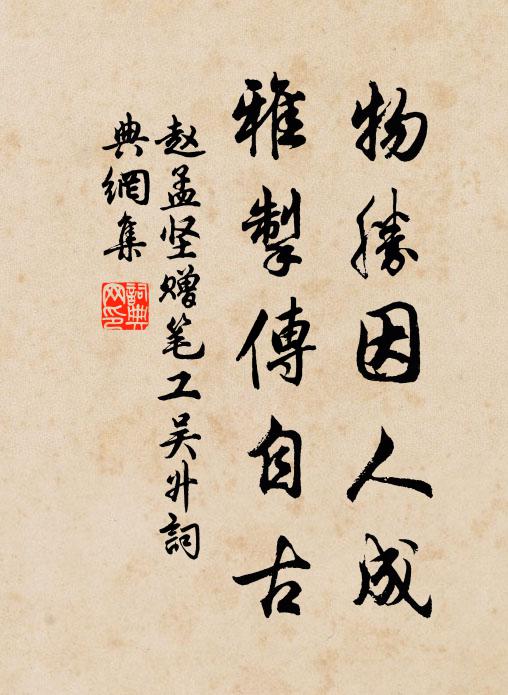 物勝因人成
雅掣傳自古
赵孟坚赠笔工吴升詞
典網集
詞典網印